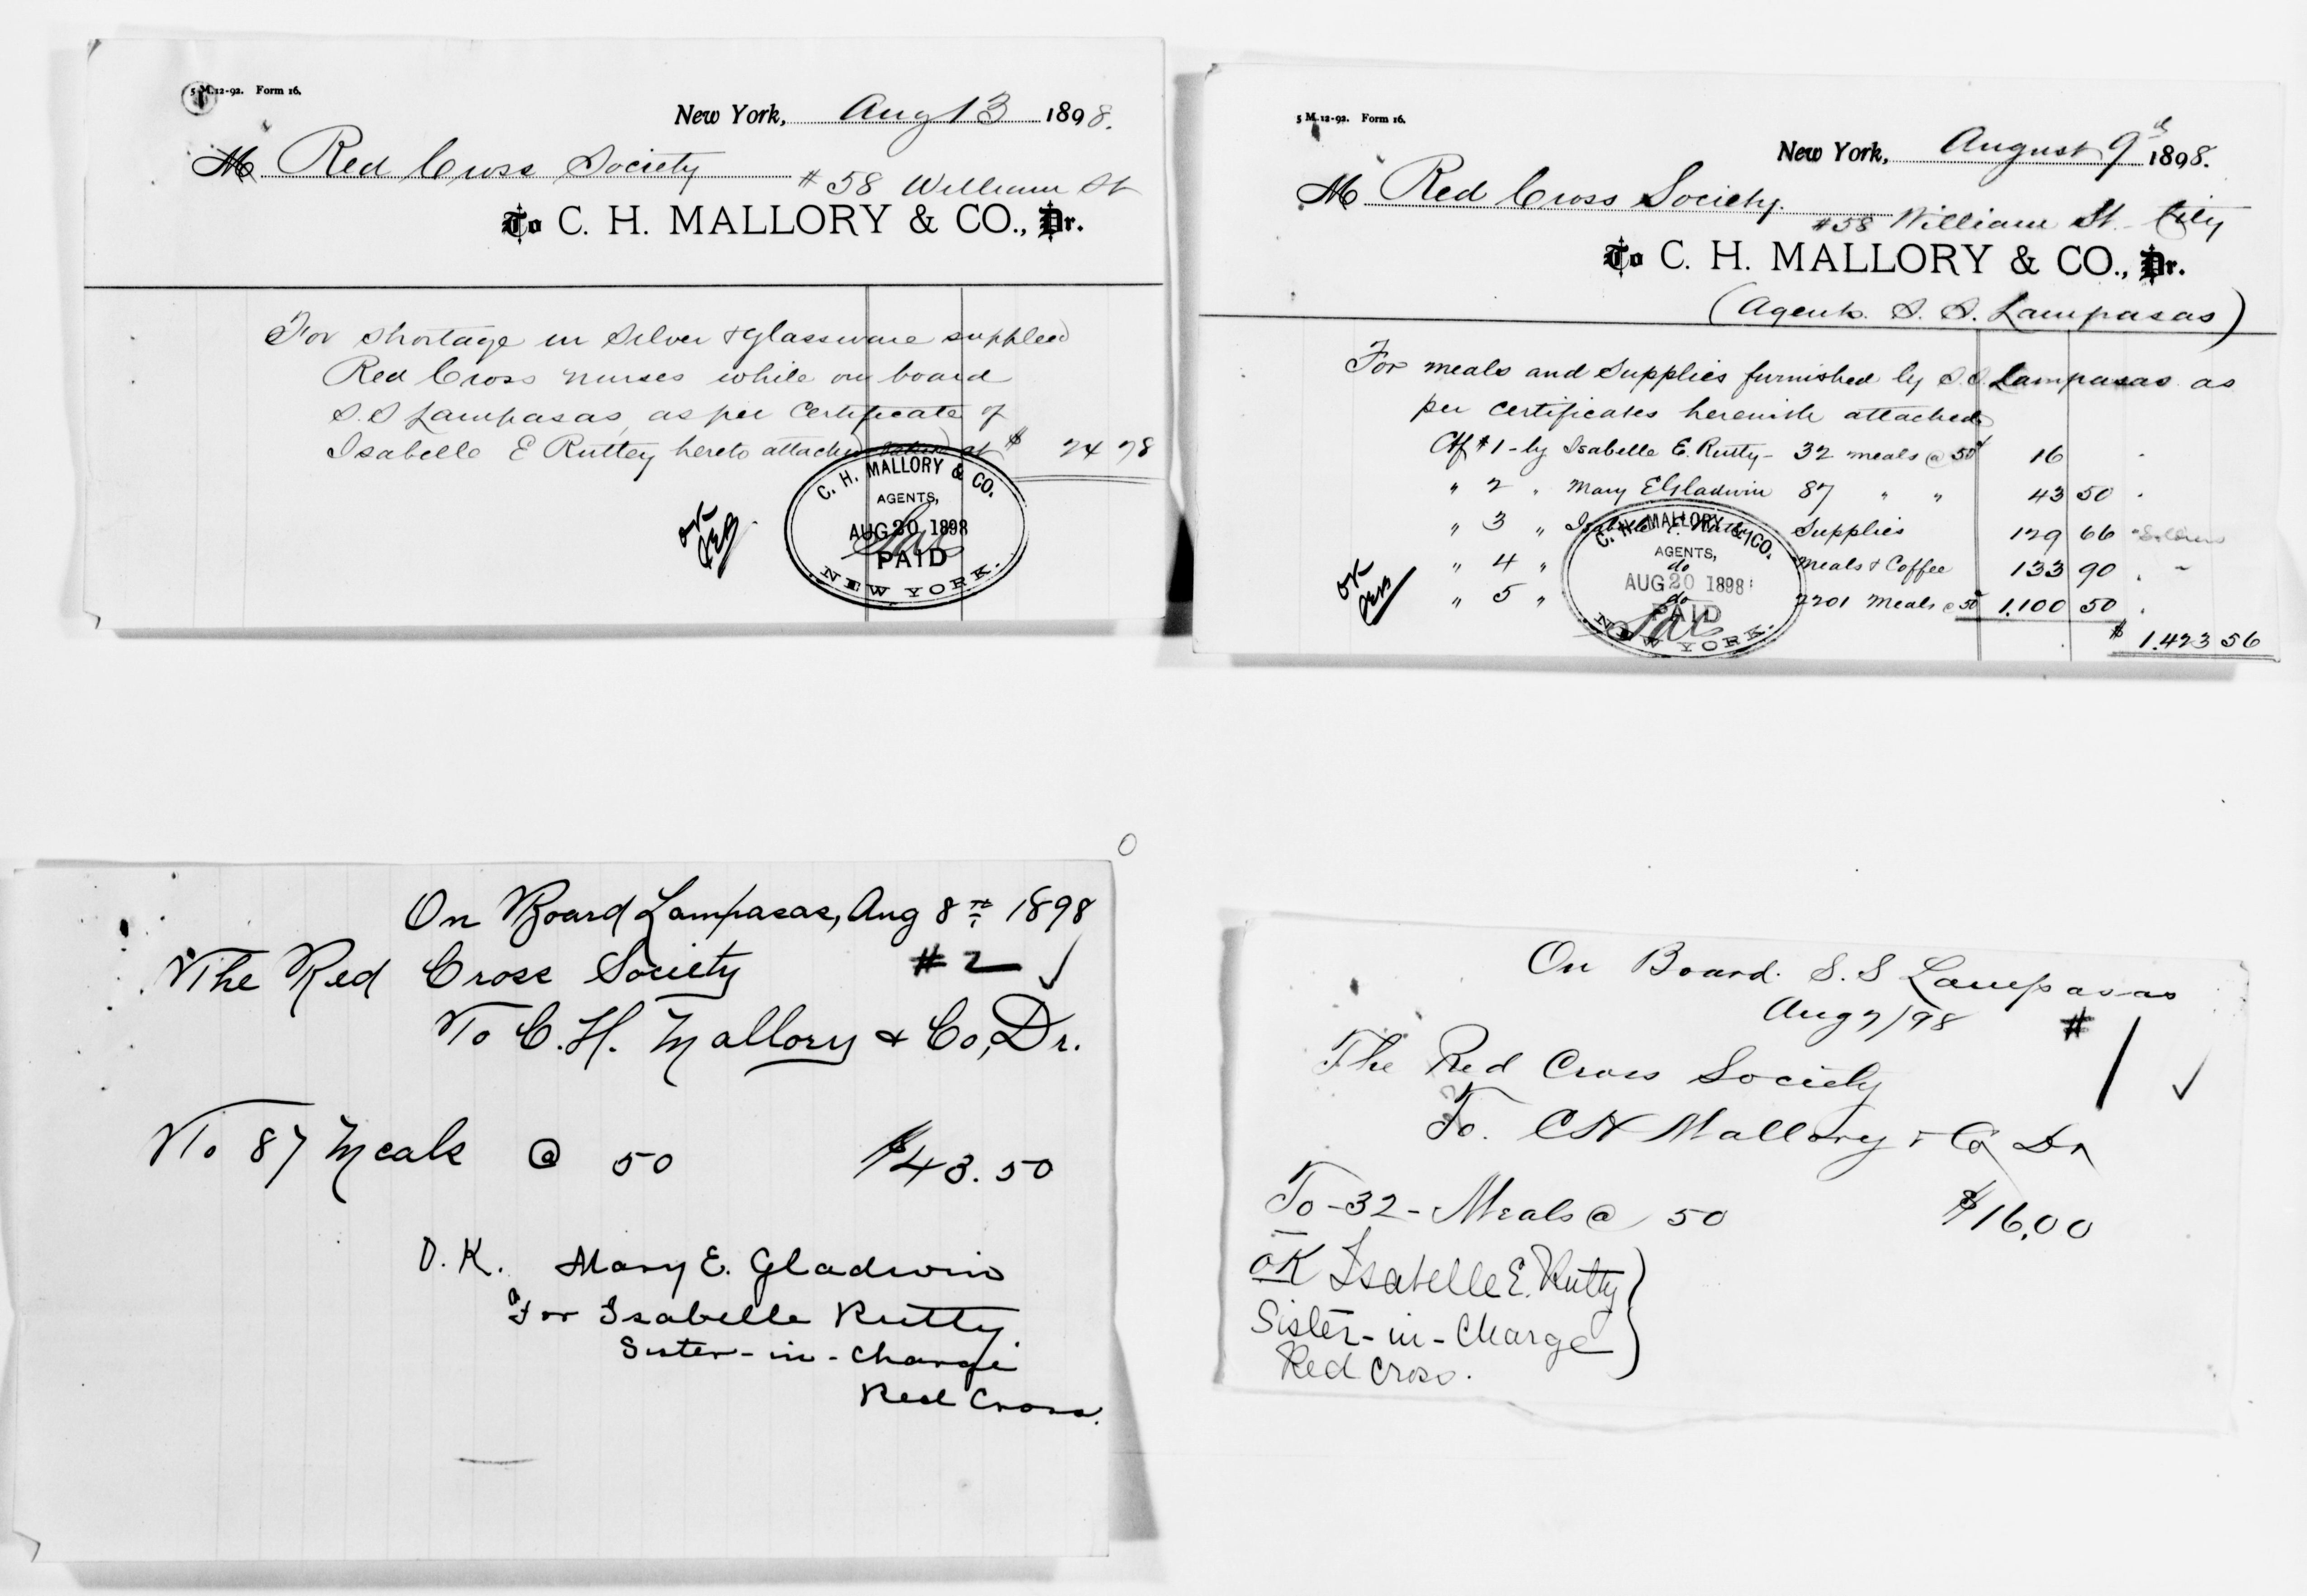 5 M. 12-92. Form 16.
New York, Aug 13 1898.
M Red Cross Society
#58 William St
To C. H. MALLORY & CO., Dr.
For shortage in Silver & Glassware supplied
Red Cross nurses while on board
S.S Lampasas, as per Certificate of
Isabelle E Ruttey hereto attached at $ 24 78
OK
C. H. MALLORY & CO.
AGENTS,
AUG 20 1898
PAID
NEW YORK.
5 M. 12-92. Form 16.
New York, August 9th 1898.
M Red Cross Society.
#58 William St. City
To C. H. MALLORY & CO., Dr.
(Agents. S. S. Lampasas)
For meals and Supplies furnished by S.S. Lampasas as
per certificates herewith attached
Ctf #1 - by Isabelle E. Rutty - 32 meals @ 50 16
" 2 " Mary E Gladwin 87 " " 43 50
" 3 " Isabelle E. Rutty Supplies 129 66
" 4 " do Meals & Coffee 133 90
" 5 " do 2201 Meals @ 50 1,100 50
$ 1.423 56
OK
C. H. MALLORY & CO.
AGENTS,
AUG 20 1898
PAID
NEW YORK.
On Board Lampasas, Aug 8th 1898
The Red Cross Society #2
To C. H. Mallory & Co, Dr.
To 87 Meals @ 50 $43.50
O.K. Mary E. Gladwin
For Isabelle Rutty.
Sister-in-charge
Red Cross.
On Board. S.S Lampasas
Aug 7/98 # 1
The Red Cross Society
To. CH Mallory & Co Dr
To - 32 - Meals @ 50 $16.00
OK Isabelle E. Rutty
Sister-in-Charge
Red Cross.